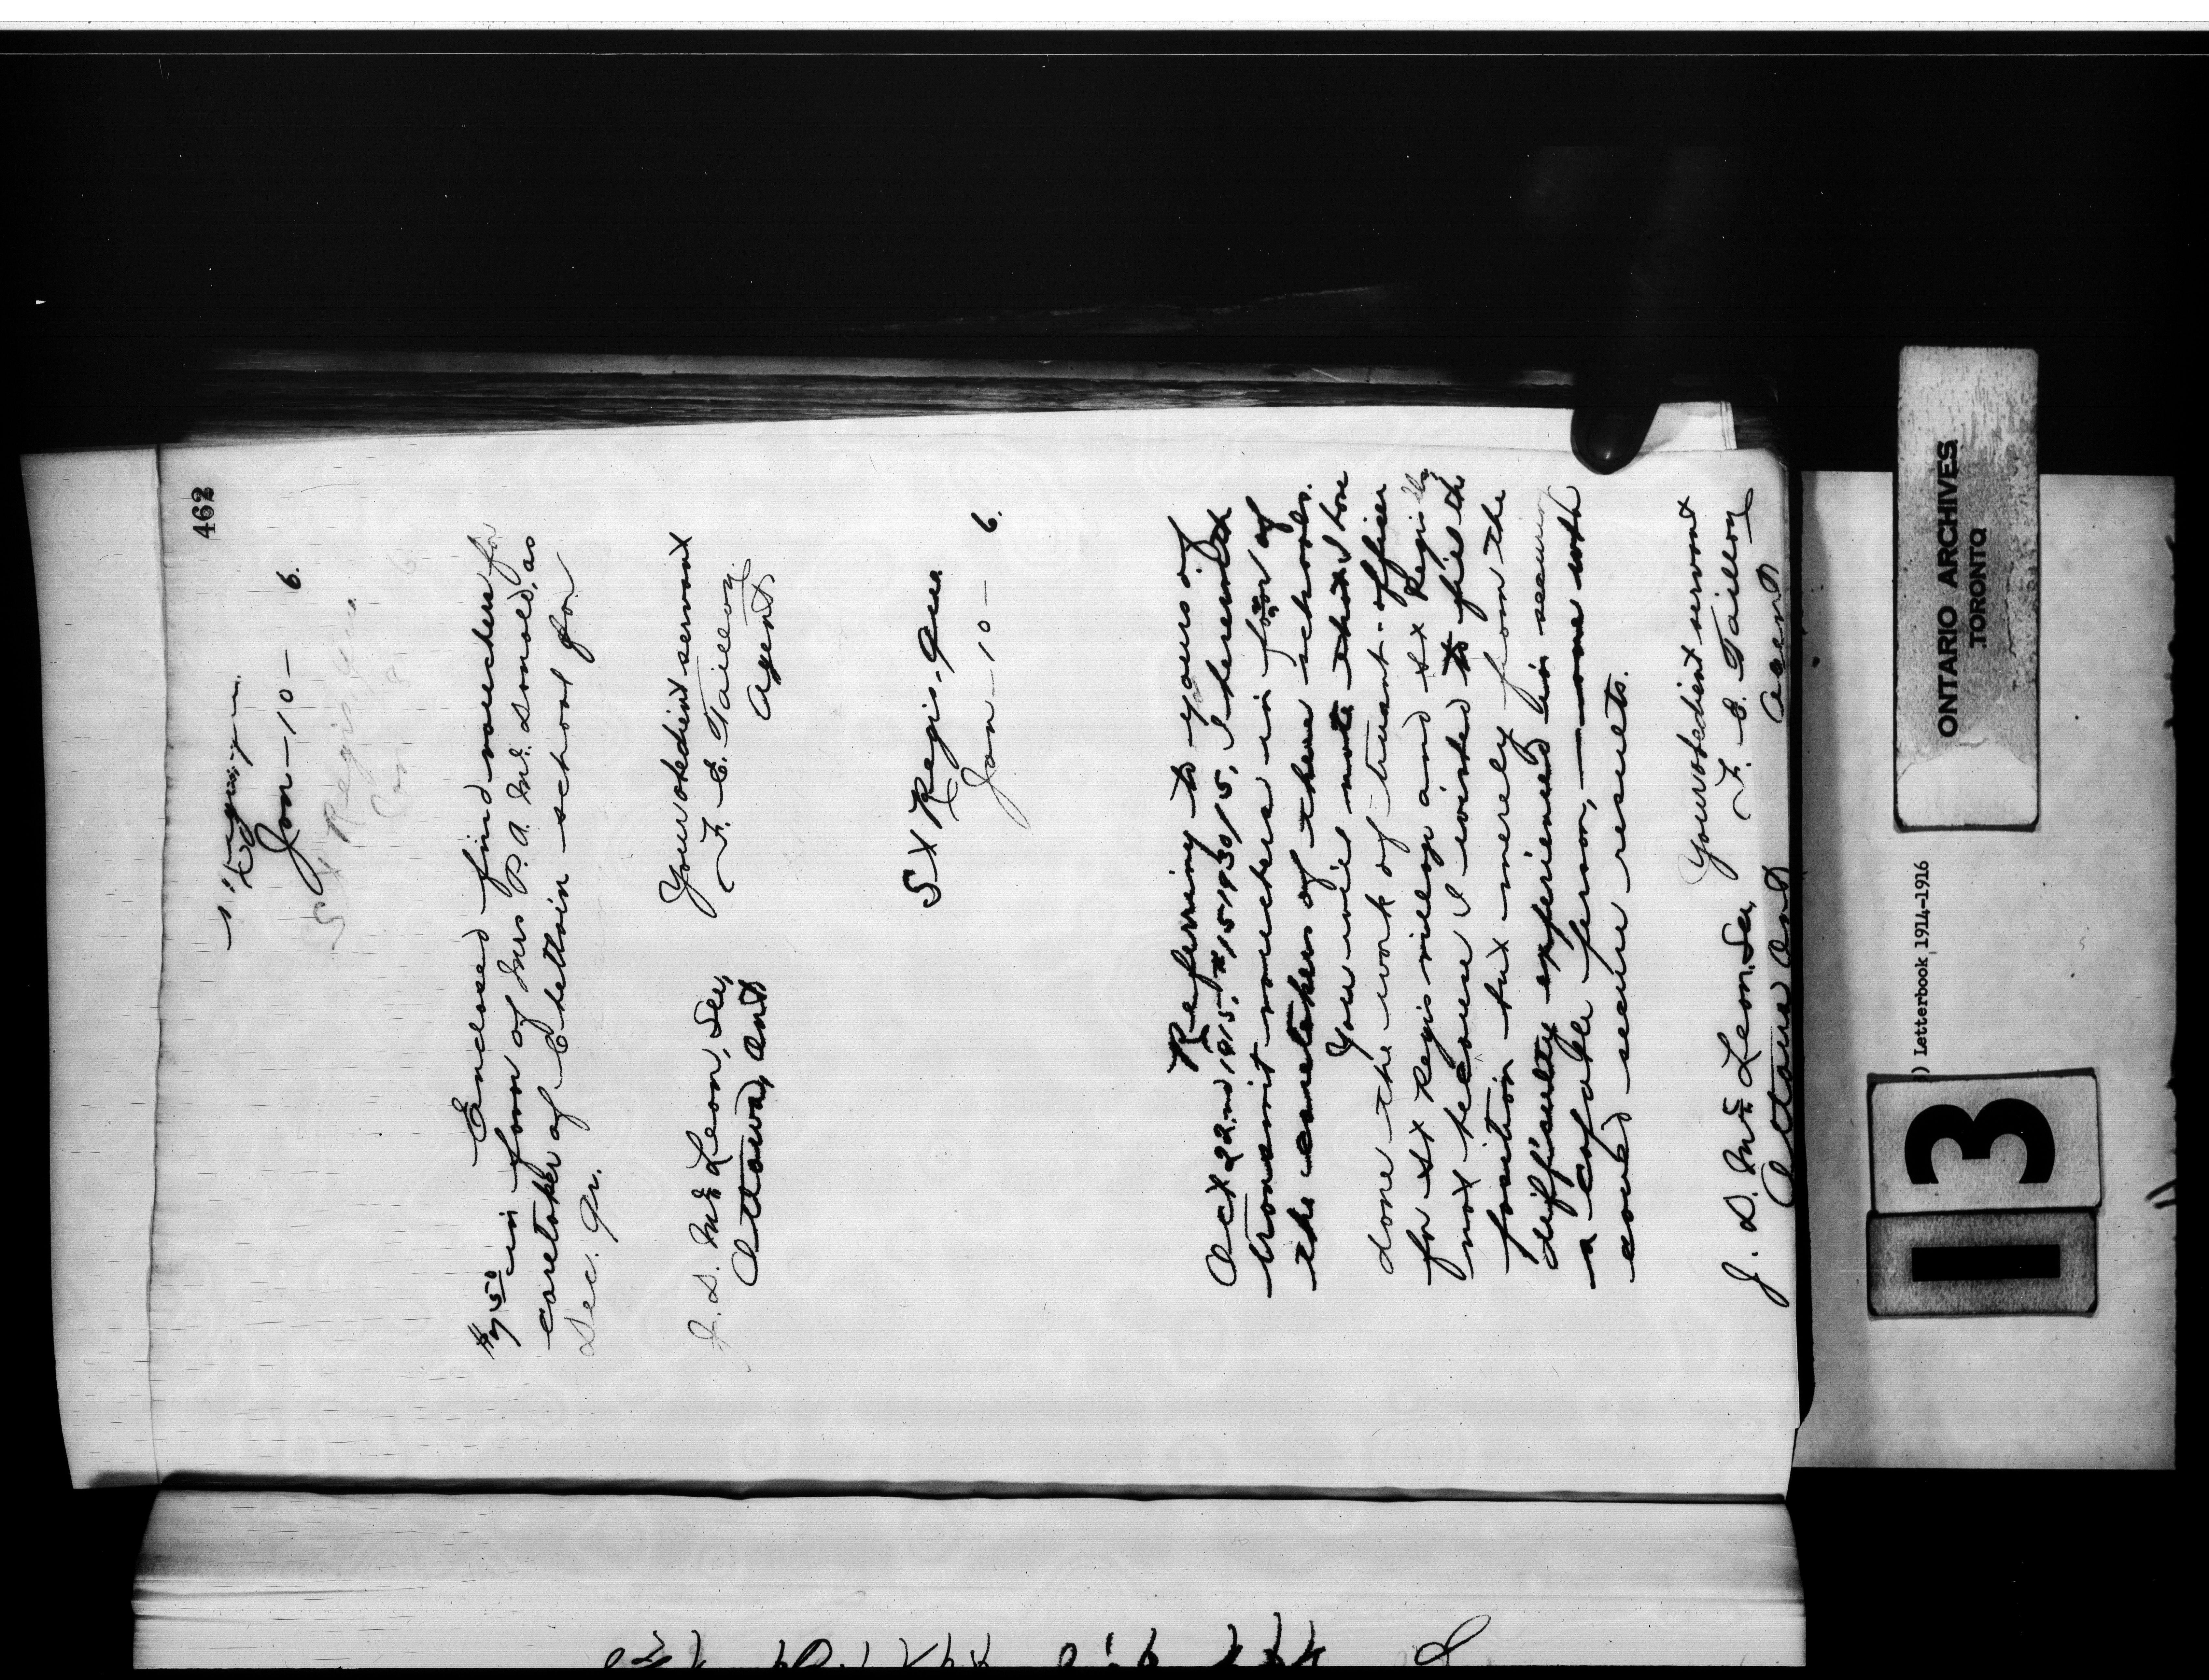 462
St Regis, Que
Jan - 10 - 6.
St Regis, Que
Jan 8 6
Enclosed find vouchers for
$7.50 in favor of Mrs P. A. McDonald, as
caretaker of Chettain school for
Dec. Qr.
Your obedient servant
F. E. Taillon
Agent
J. D. McLean, Sec,
Ottawa, Ont
St Regis, Que
Jan - 10 - 6.
Referring to yours of
Oct 22nd 1915, I herewith
transmit vouchers in favor of
the caretakers of these schools.
You will note that I have
done the work of truant-officer
for St Regis village and St Regis
not because I wished to fill the
position but merely from the
difficulty experienced in securing
a capable person, - one who
could secure results.
Your obedient servant
F. E. Taillon
Agent
J. D. McLean, Sec,
Ottawa Ont
ONTARIO ARCHIVES
TORONTO
) Letterbook 1914-1916
13